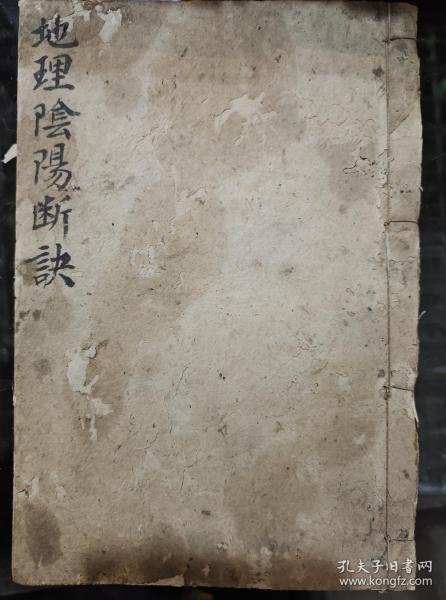 地理陰陽断訣
孔夫子旧书网
www.kongfz.com